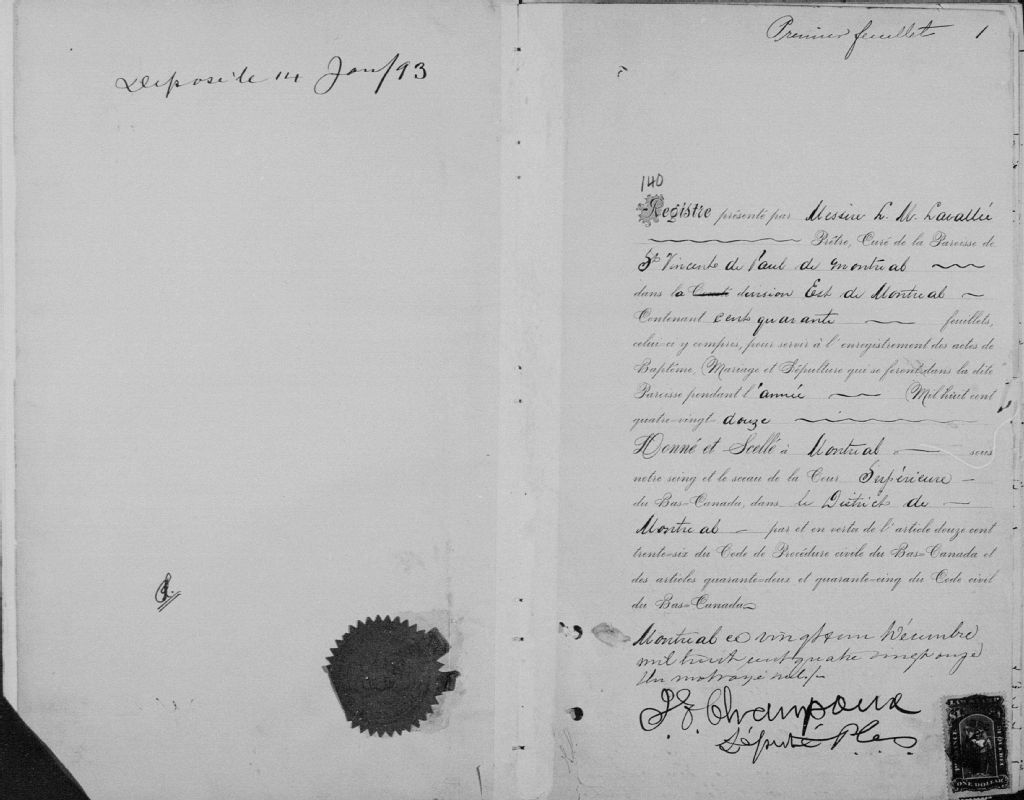 Déposé le 14 Janv/93
Premier feuillet 1
140
Registre présenté par Messire L. M. Lavallée
Prêtre, Curé de la Paroisse de
St Vincente de Paul de Montréal
dans la Comté division Est de Montréal
Contenant cent quarante feuillets,
celui-ci y compris, pour servir à l'enregistrement des actes de
Baptême, Mariage et Sépulture qui se feront dans la dite
Paroisse pendant l'année Mil huit cent
quatre-vingt douze
Donné et Scellé à Montréal sous
notre seing et le sceau de la Cour Supérieure
du Bas-Canada, dans le District de
Montréal par et en vertu de l'article douze cent
trente-six du Code de Procédure civile du Bas-Canada et
des articles quarante-deux et quarante-cinq du Code civil
du Bas-Canada
Montréal ce vingt et un Décembre
mil huit cent quatre vingt onze
Un mot rayé nul
J. E. Champoux
Député P.C.S.
PROVINCE
QUEBEC
ONE DOLLAR